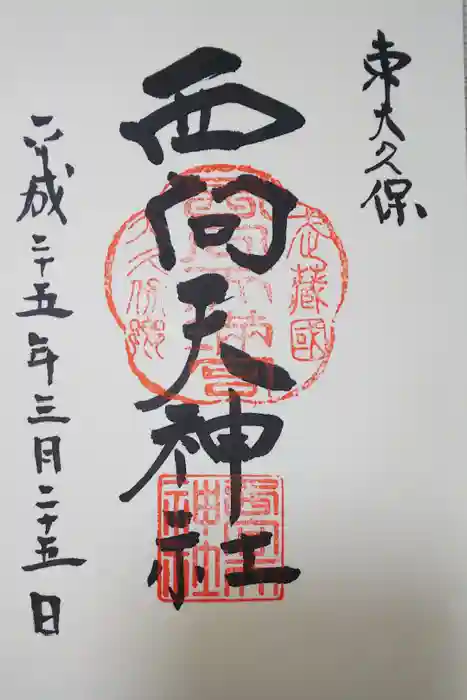 東大久保
西向天神社
平成二十五年三月二十五日
武蔵國